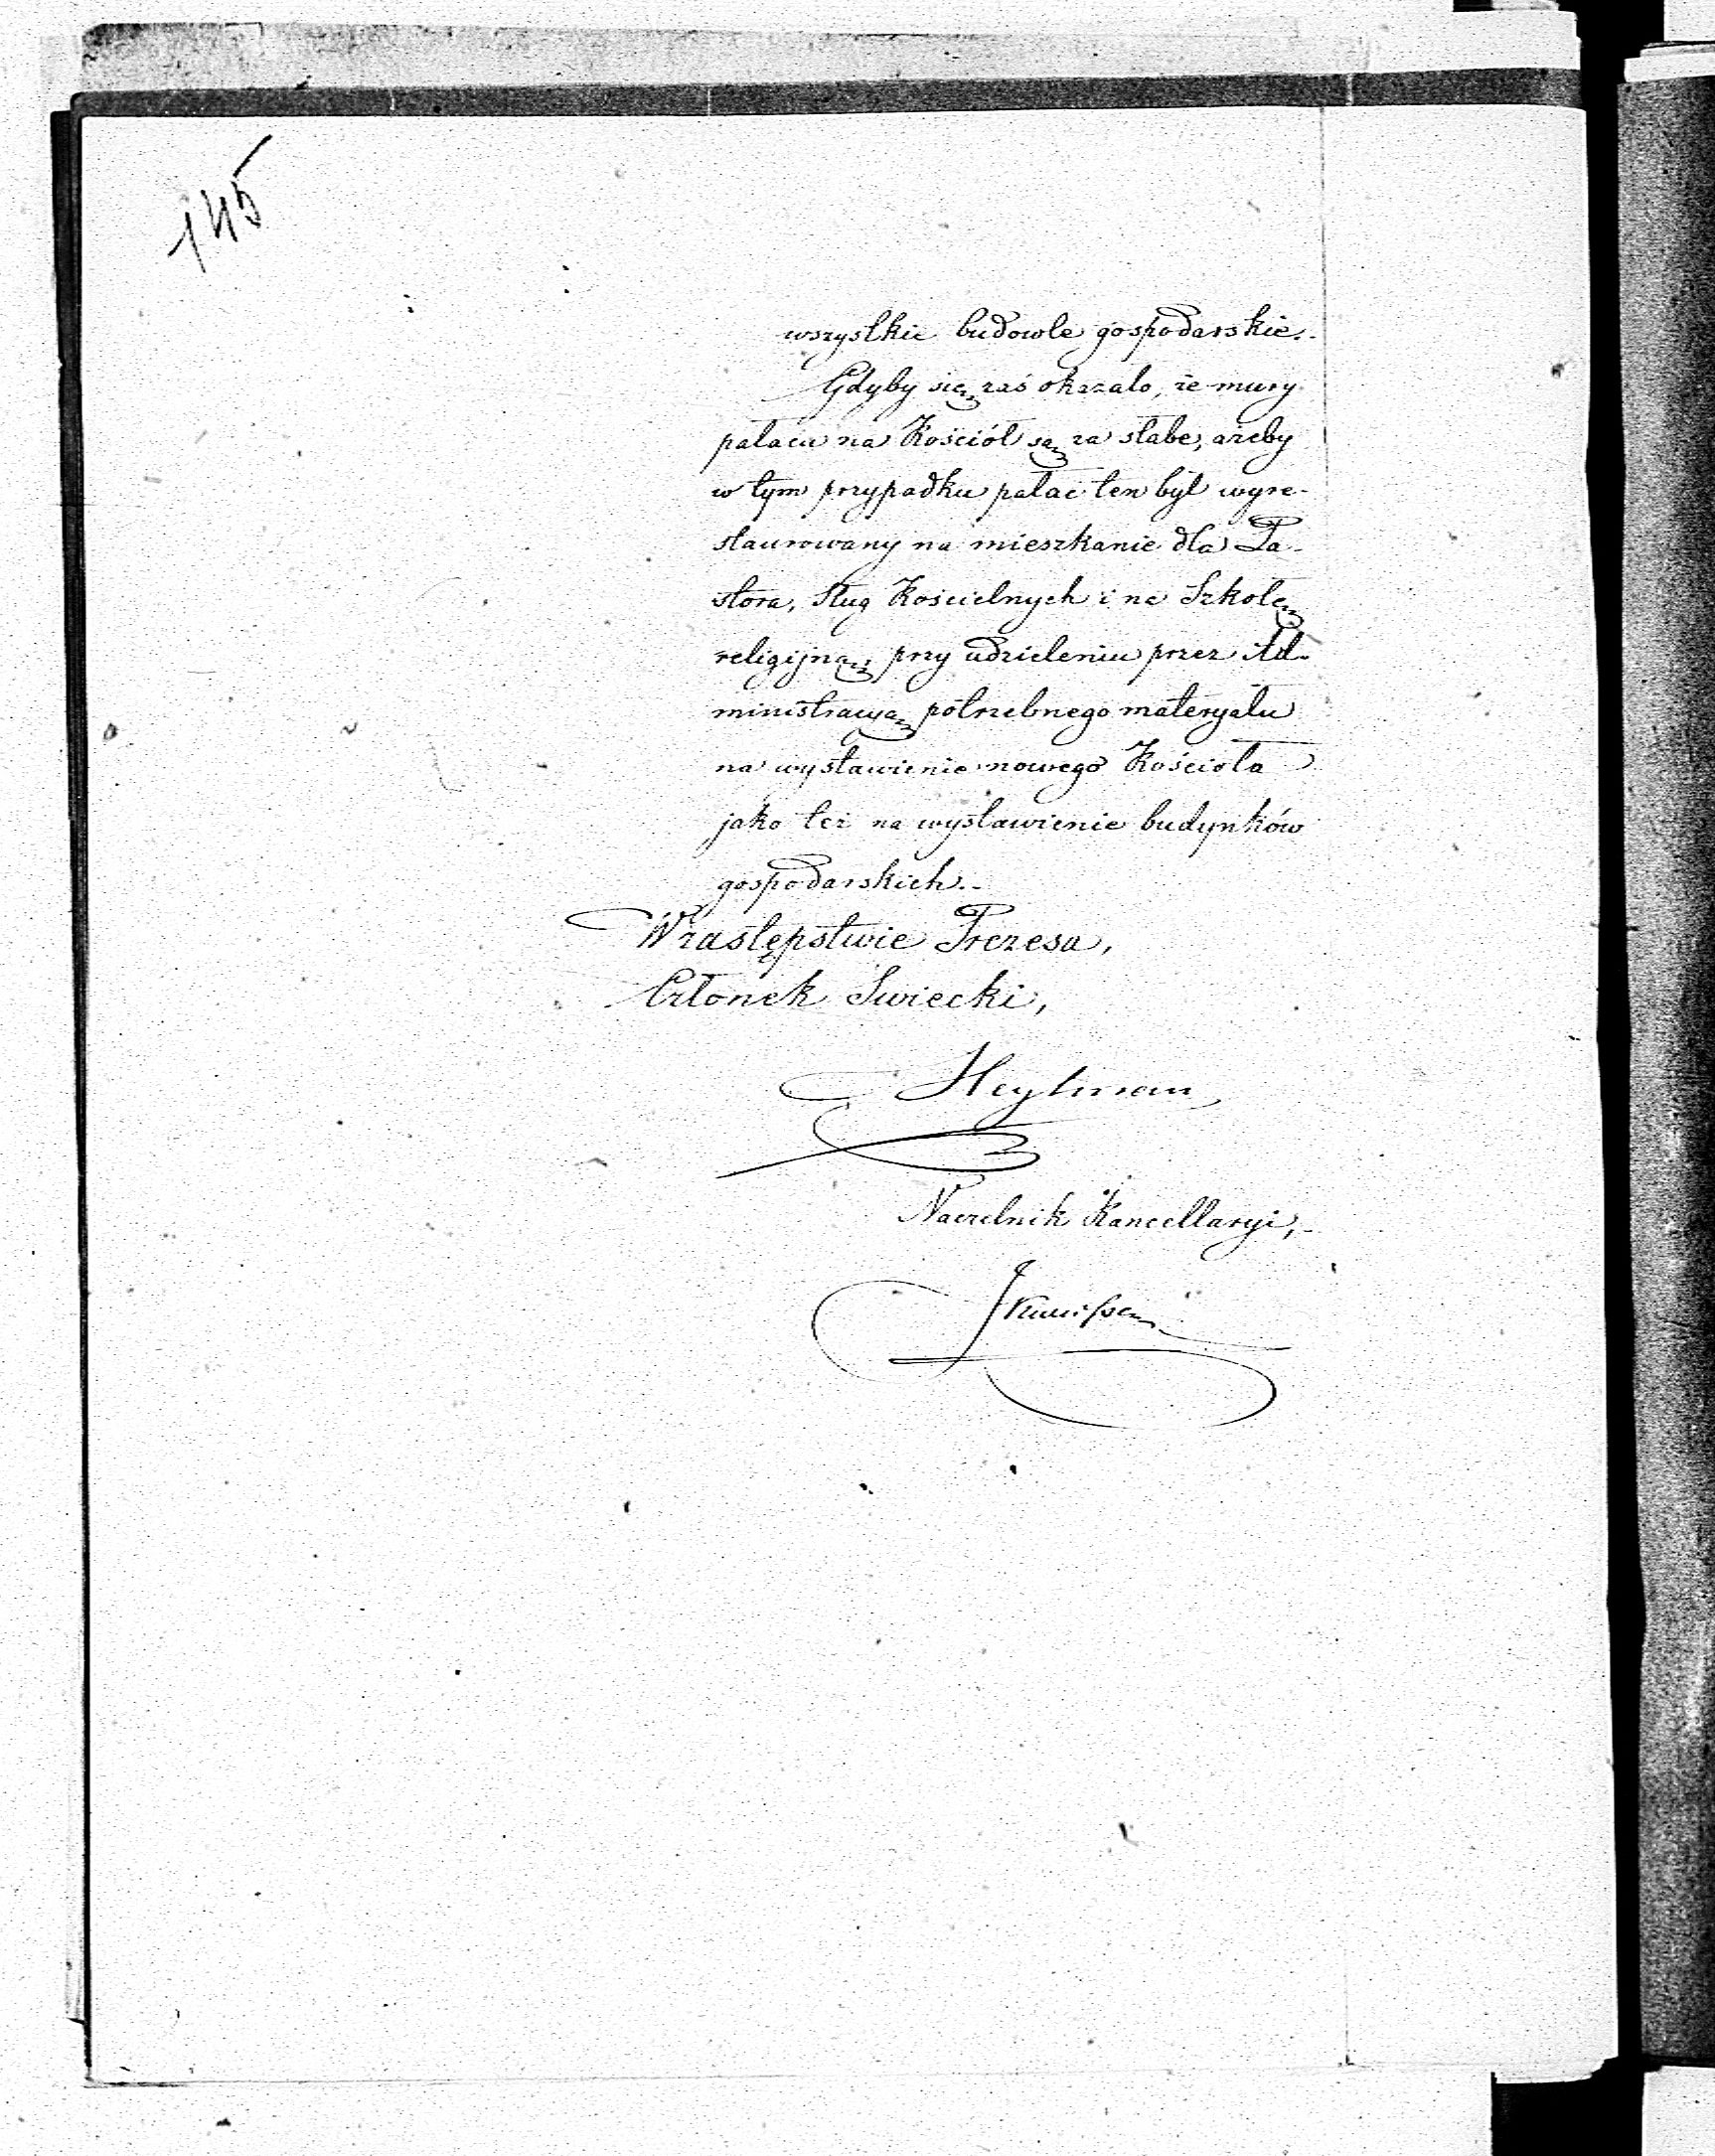 145
wszystkie budowle gospodarskie.-
Gdyby się zaś okazało, że mury
pałacu na Kościół są za słabe, ażeby
w tym przypadku pałac ten był wyre-
staurowany na mieszkanie dla Pa-
stora, Sług Kościelnych i na Szkołę
religijną, przy udzieleniu przez Ad-
ministracyą potrzebnego materyału
na wystawienie nowego Kościoła
jako też na wystawienie budynków
gospodarskich.-
W zastępstwie Prezesa,
Członek Swiecki,
Heylman
Naczelnik Kancellaryi,